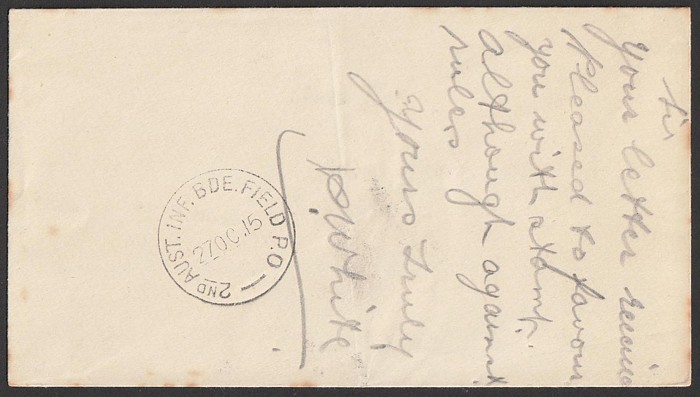 Sir
Your letter receive
Pleased to favour
you with stamp.
although against
rules
Yours Truly
White
2ND AUST. INF. BDE. FIELD P.O
27 OC 15